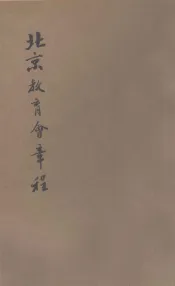 北京教育會章程